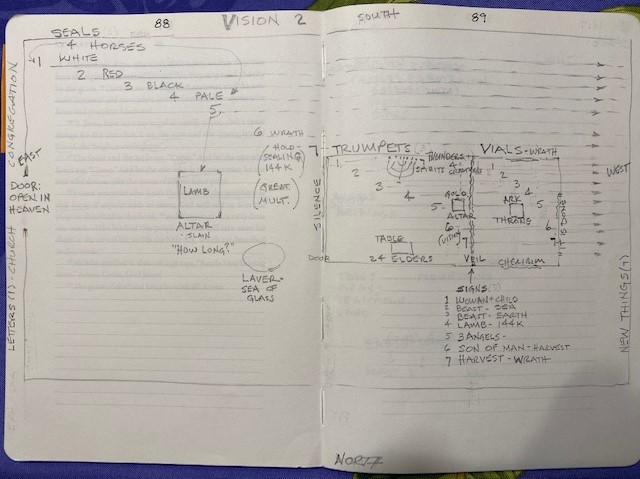 88
VISION 2
SOUTH
89
SEALS
4 HORSES
1
WHITE
2 RED
3 BLACK
4 PALE
5
CONGREGATION
EAST
DOOR:
OPEN IN
HEAVEN
LETTERS (7) - CHURCH
LAMB
ALTAR
- SLAIN
"HOW LONG?"
6 WRATH
(HOLD-
SEALING
144K)
(GREAT
MULT.)
LAVER-
SEA OF
GLASS
7
SILENCE
DOOR
TRUMPETS
1
2
3
4
5
6
7
SPIRITS
GOLD
ALTAR
TABLE
24 ELDERS
VEIL
VIALS - WRATH
1
2
3
4
5
6
7
ARK
THRONE
CHERIBIM
WEST
NEW THINGS (7)
SIGNS (7)
1 WOMAN + CHILD
2 BEAST - SEA
3 BEAST - EARTH
4 LAMB - 144K
5 3 ANGELS -
6 SON OF MAN - HARVEST
7 HARVEST - WRATH
NORTH